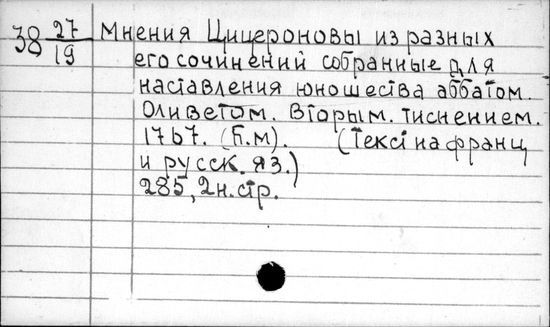 38 27/19 Мнения Цицероновы из разных
его сочинений собранные для
наставления юношества аббатом.
Оливетом. Вторым. тиснением.
1767. (б.м). (Текст на франц
и русск. яз.)
285, 2н.стр.